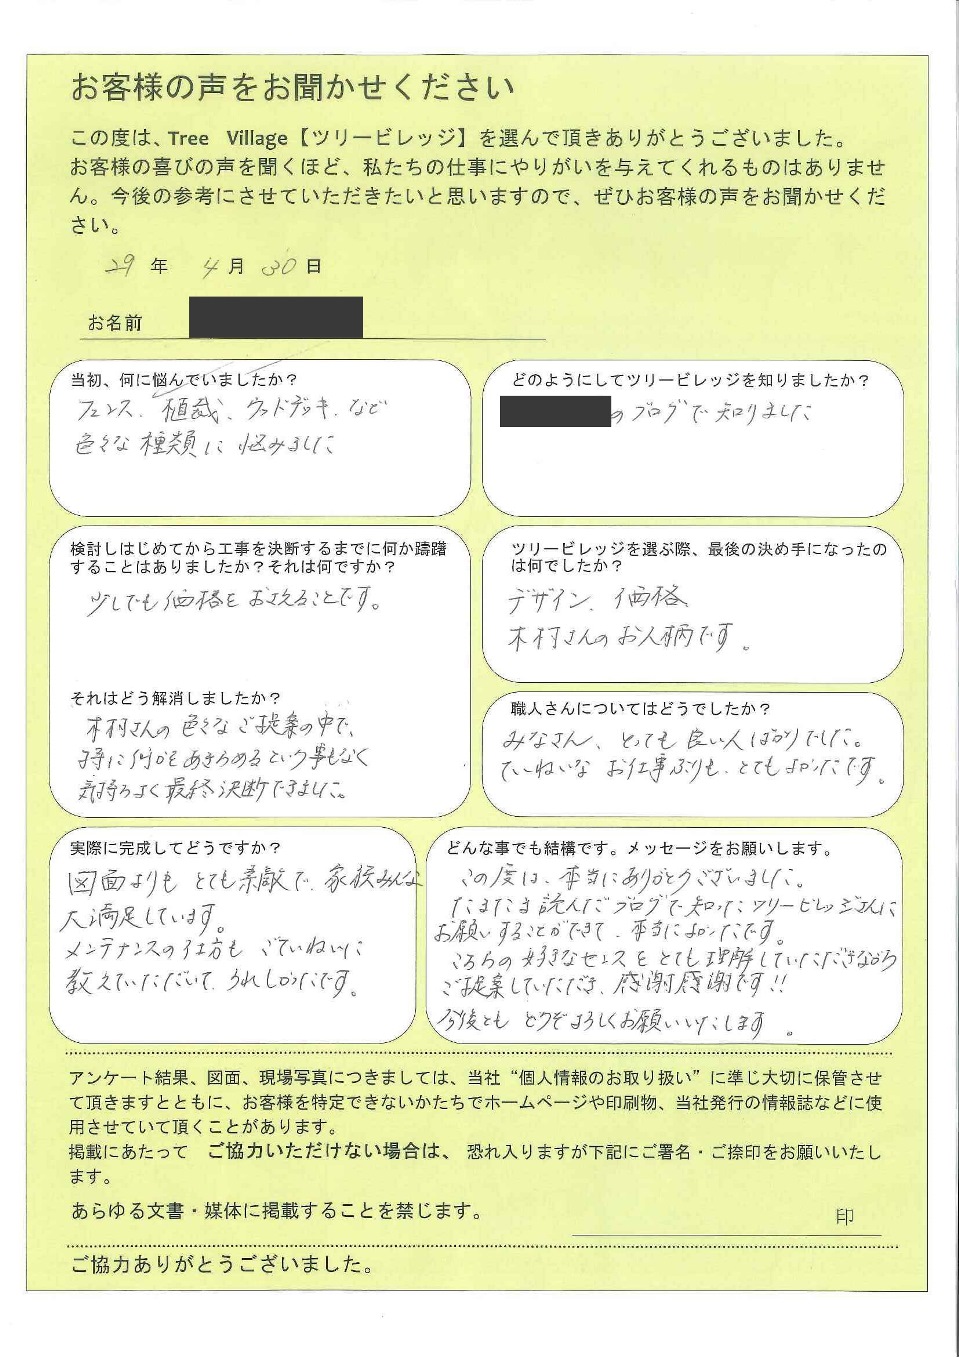 お客様の声をお聞かせください
この度は、Tree Village【ツリービレッジ】を選んで頂きありがとうございました。
お客様の喜びの声を聞くほど、私たちの仕事にやりがいを与えてくれるものはありませ
ん。今後の参考にさせていただきたいと思いますので、ぜひお客様の声をお聞かせくだ
さい。
29 年 4 月 30 日
お名前
当初、何に悩んでいましたか？
フェンス、植栽、ウッドデッキ、など
色々な種類に悩みました
どのようにしてツリービレッジを知りましたか？
のブログで知りました
検討しはじめてから工事を決断するまでに何か躊躇
することはありましたか？それは何ですか？
少しでも価格をおさえることです。
それはどう解消しましたか？
木村さんの色々なご提案の中で、
特に何かをあきらめるという事もなく
気持ちよく最終決断できました。
ツリービレッジを選ぶ際、最後の決め手になったの
は何でしたか？
デザイン、価格
木村さんのお人柄です。
職人さんについてはどうでしたか？
みなさん、とっても良い人ばかりでした。
ていねいなお仕事ぶりも、とてもよかったです。
実際に完成してどうですか？
図面よりもとても素敵で、家族みんな
大満足しています。
メンテナンスの仕方もごていねいに
教えていただいて、うれしかったです。
どんな事でも結構です。メッセージをお願いします。
この度は、本当にありがとうございました。
たまたま読んだブログで知ったツリービレッジさんに
お願いすることができて、本当によかったです。
こちらの好きなセンスをとても理解していただきながら
ご提案していただき、感謝感謝です!!
今後ともどうぞよろしくお願いいたします。
アンケート結果、図面、現場写真につきましては、当社“個人情報のお取り扱い”に準じ大切に保管させ
て頂きますとともに、お客様を特定できないかたちでホームページや印刷物、当社発行の情報誌などに使
用させていて頂くことがあります。
掲載にあたって ご協力いただけない場合は、 恐れ入りますが下記にご署名・ご捺印をお願いいたし
ます。
あらゆる文書・媒体に掲載することを禁じます。
印
ご協力ありがとうございました。